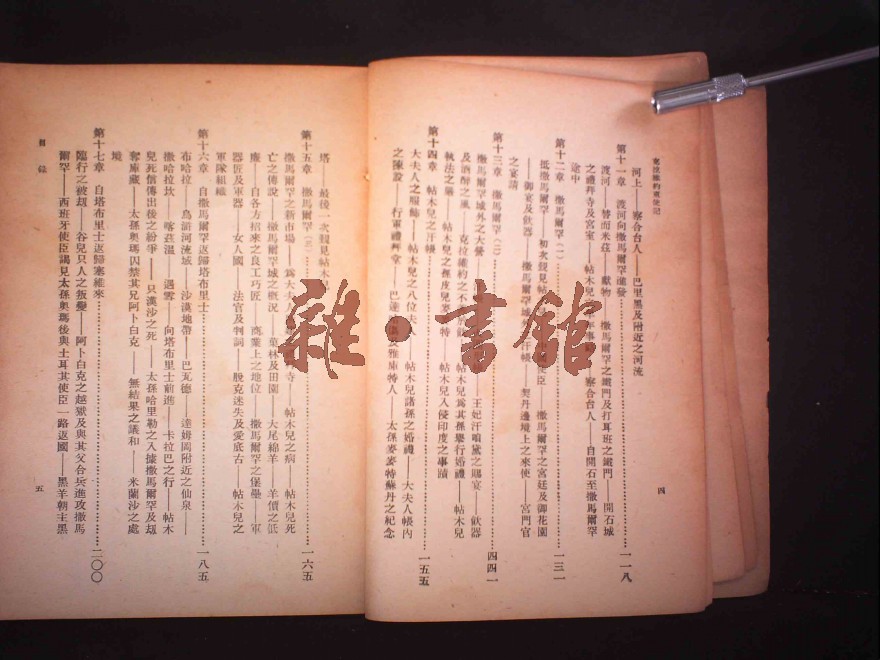 克拉維約東使記
河上——察合台人——巴里黑及附近之河流
第十一章 渡河向撒馬爾罕進發……一一八
渡河——替而米茲——獻物——撒馬爾罕之鐵門及打耳班之鐵門——開石城
之禮拜寺及宮室——帖木兒 年事 ——察合台人——自開石至撒馬爾罕
途中
第十二章 撒馬爾罕（一）……一三一
抵撒馬爾罕——初次覲見帖木 使臣——撒馬爾罕之宮廷及御花園
——御宴及飲器——撒馬爾罕城 汗帳——契丹邊境上之來使——宮門官
之宴請
第十三章 撒馬爾罕（二）……四四一
撒馬爾罕城外之大營 王妃汗 之賜宴——飲器
及酒醉之風——克拉維約之不 ——帖木兒爲其孫舉行婚禮——帖木兒
執法之嚴——帖木兒之孫皮兒 特——帖木兒入侵印度之事蹟
第十四章 帖木兒之汗帳……一五五
大夫人之服飾——帖木兒之八位夫 ——帖木兒諸孫之婚禮——大夫人帳內
之陳設——行軍禮拜堂——巴達 長雅庫特人——太孫麥麥特蘇丹之紀念
四
塔——最後一次覲見帖木
第十五章 撒馬爾罕（三）……一六五
撒馬爾罕之新市場——爲大夫 寺——帖木兒之病——帖木兒死
亡之傳說——撒馬爾罕城之概況——菓林及田園——大尾綿羊——羊價之低
廉——自各方招來之良工巧匠——商業上之地位——撒馬爾罕之堡壘——軍
器匠及軍器——女人國——法官及判詞——股克迷失及愛底古——帖木兒之
軍隊組織
第十六章 自撒馬爾罕返歸塔布里士……一八五
布哈拉——烏滸河流域——沙漠地帶——巴瓦德——達姆岡附近之仙泉——
撒哈拉坎——喀茲溫——遇雪——向塔布里士前進——卡拉巴之行——帖木
兒死信傳出後之紛爭——只漢沙之死——太孫哈里勒之入據撒馬爾罕及刼
奪庫藏——太孫奧瑪囚禁其兄阿卜白克——無結果之議和——米蘭沙之處
境
第十七章 自塔布里士返歸塞維來……二〇〇
臨行之被刼——谷兒只人之叛變——阿卜白克之越獄及與其父合兵進攻撒馬
爾罕——西班牙使臣謁見太孫奧瑪後與土耳其使臣一路返國——黑羊朝主黑
目錄
五
雜·書館